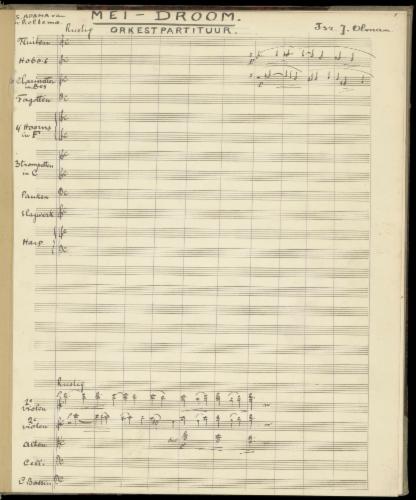 MEI - DROOM.
S. ADAMA van
Scheltema
ORKESTPARTITUUR.
Isr. J. Olman
Rustig
Fluiten
Hobo's
Clarinetten
in Bes
Fagotten
4 Hoorns
in F
3 trompetten
in C
Pauken
Slagwerk
Harp
Rustig
1e
violen
2e
violen
Alten
Cell.
C. Bassen